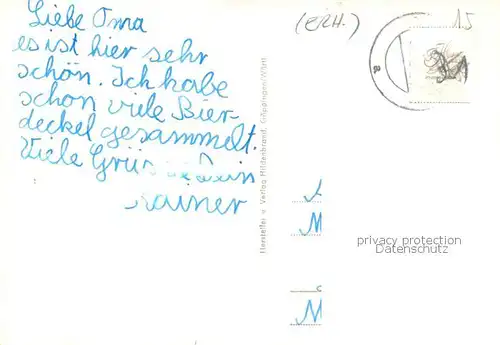 Liebe Oma
es ist hier sehr
schön. Ich habe
schon viele Bier-
deckel gesammelt.
Viele Grüsse Dein
Rainer
(ERH.)
15
Hersteller u. Verlag Hildenbrand, Göppingen/Württ
privacy protection
Datenschutz